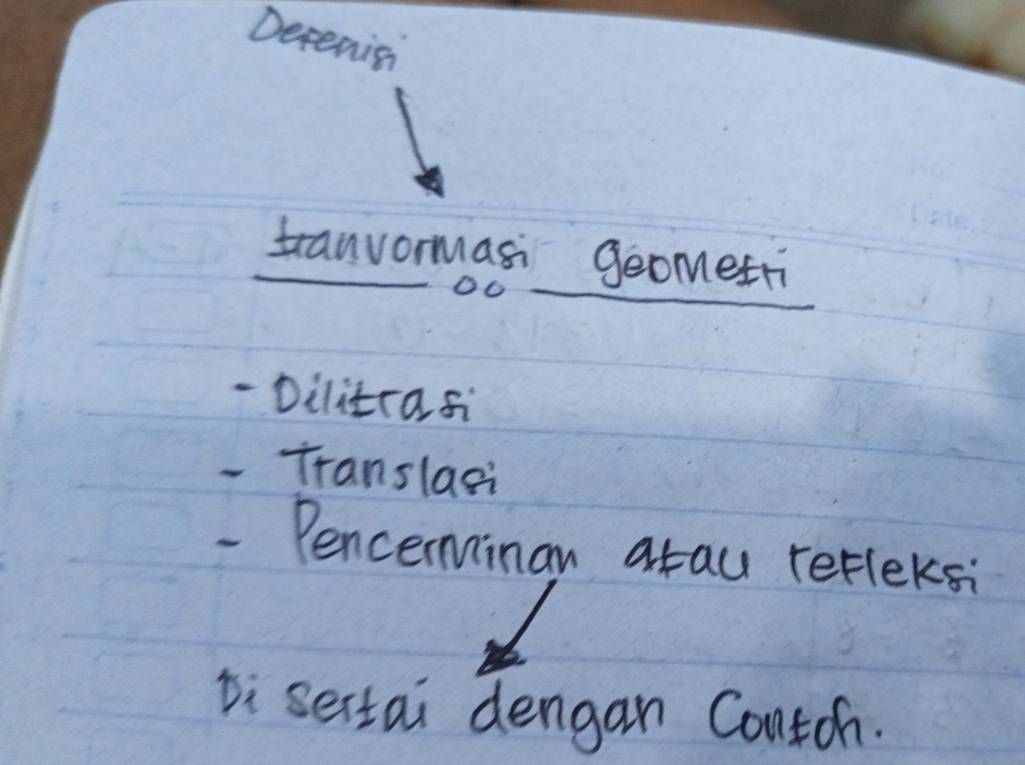 Defenisi
tranvormasi geometri
- Dilitrasi
- Translasi
- Pencerminan atau refleksi
Di sertai dengan Contoh.